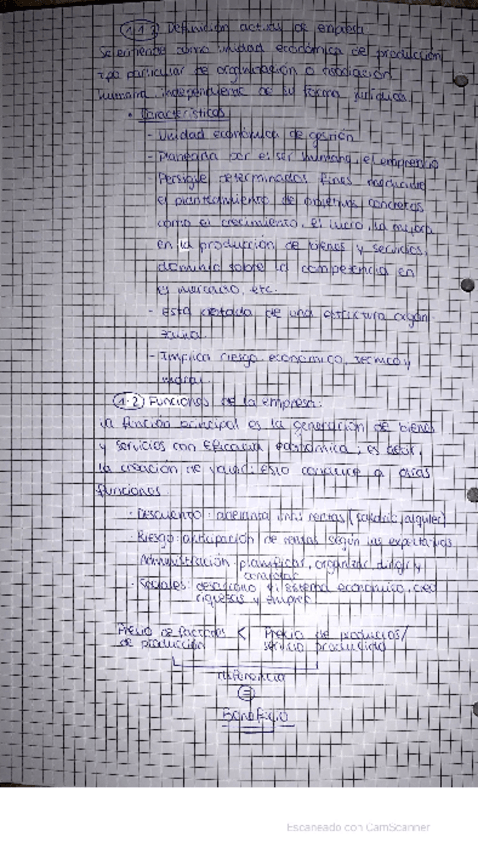 1.1.3 Definición actual de empresa
Se entiende como unidad económica de producción,
tipo particular de organización o asociación
humana independiente de su forma jurídica.
• Características
- Unidad económica de gestión
- Planeada por el ser humano, el empresario
- Persigue determinados fines mediante
el planteamiento de objetivos concretos
como el crecimiento, el lucro, la mejora
en la producción de bienes y servicios,
dominio sobre la competencia en
el mercado, etc.
- Está dotada de una estructura organi-
zativa
- Implica riesgo económico, técnico y
moral.
1.2 Funciones de la empresa:
la función principal es la generación de bienes
y servicios con eficacia económica; es decir,
la creación de valor. Esto conduce a otras
funciones
· Descuento: adelanta unas rentas (salario, alquiler)
· Riesgo: anticipación de rentas según las expectativas
· Administración: planificar, organizar, dirigir y
controlar
· Sociales: desarrollo del sistema económico, crea
riquezas y empleo
Precio de factores < Precio de productos/
de producción servicio
diferencia
=
Beneficio
Escaneado con CamScanner